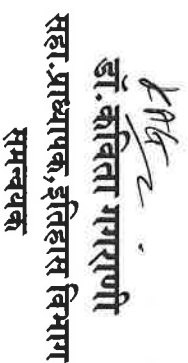 डॉ. कविता गगराणी
सहा.प्राध्यापक, इतिहास विभाग
समन्वयक